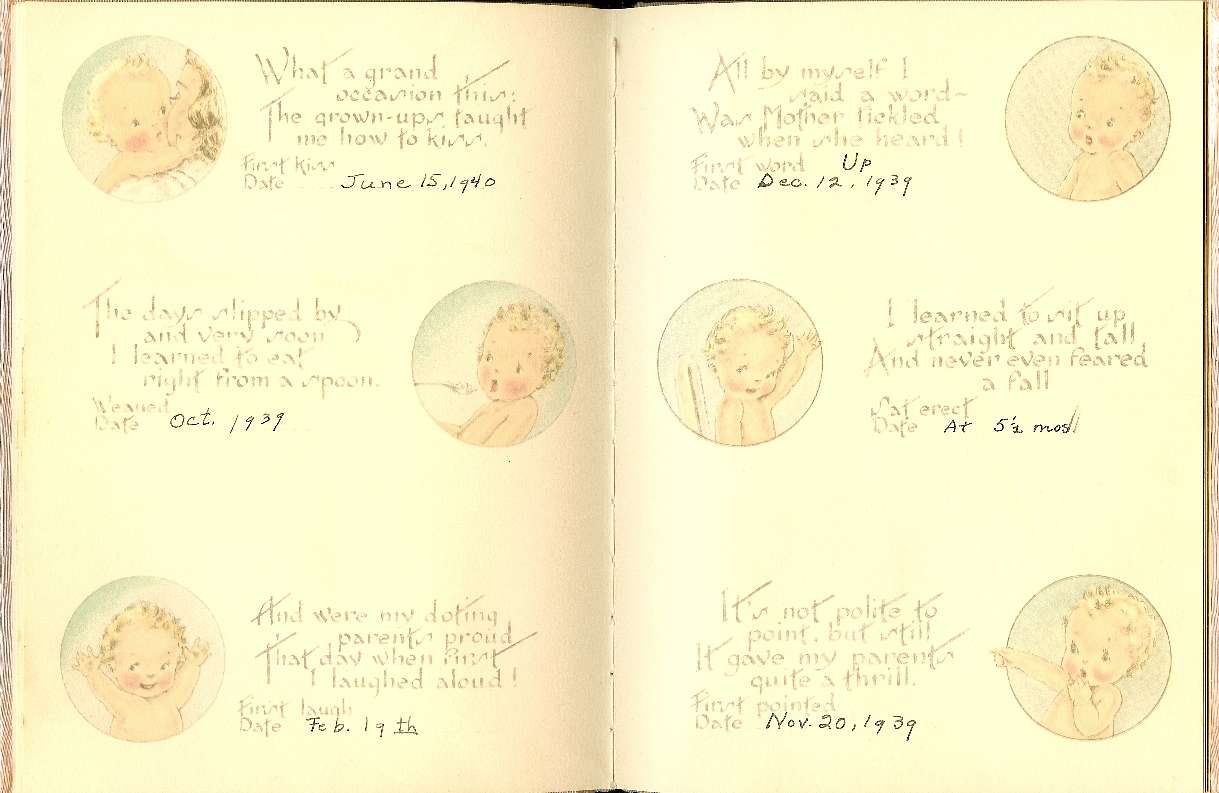 What a grand
occasion this:
The grown-ups taught
me how to kiss.
First kiss
Date June 15, 1940
The days slipped by
and very soon
I learned to eat
right from a spoon.
Weaned
Date Oct. 1939
And were my doting
parents proud
That day when first
I laughed aloud!
First laugh
Date Feb. 19th
All by myself I
said a word~
Was Mother tickled
when she heard!
First word Up
Date Dec. 12, 1939
I learned to sit up
straight and tall
And never even feared
a fall
Sat erect
Date At 5½ mos
It's not polite to
point, but still
It gave my parents
quite a thrill.
First pointed
Date Nov. 20, 1939